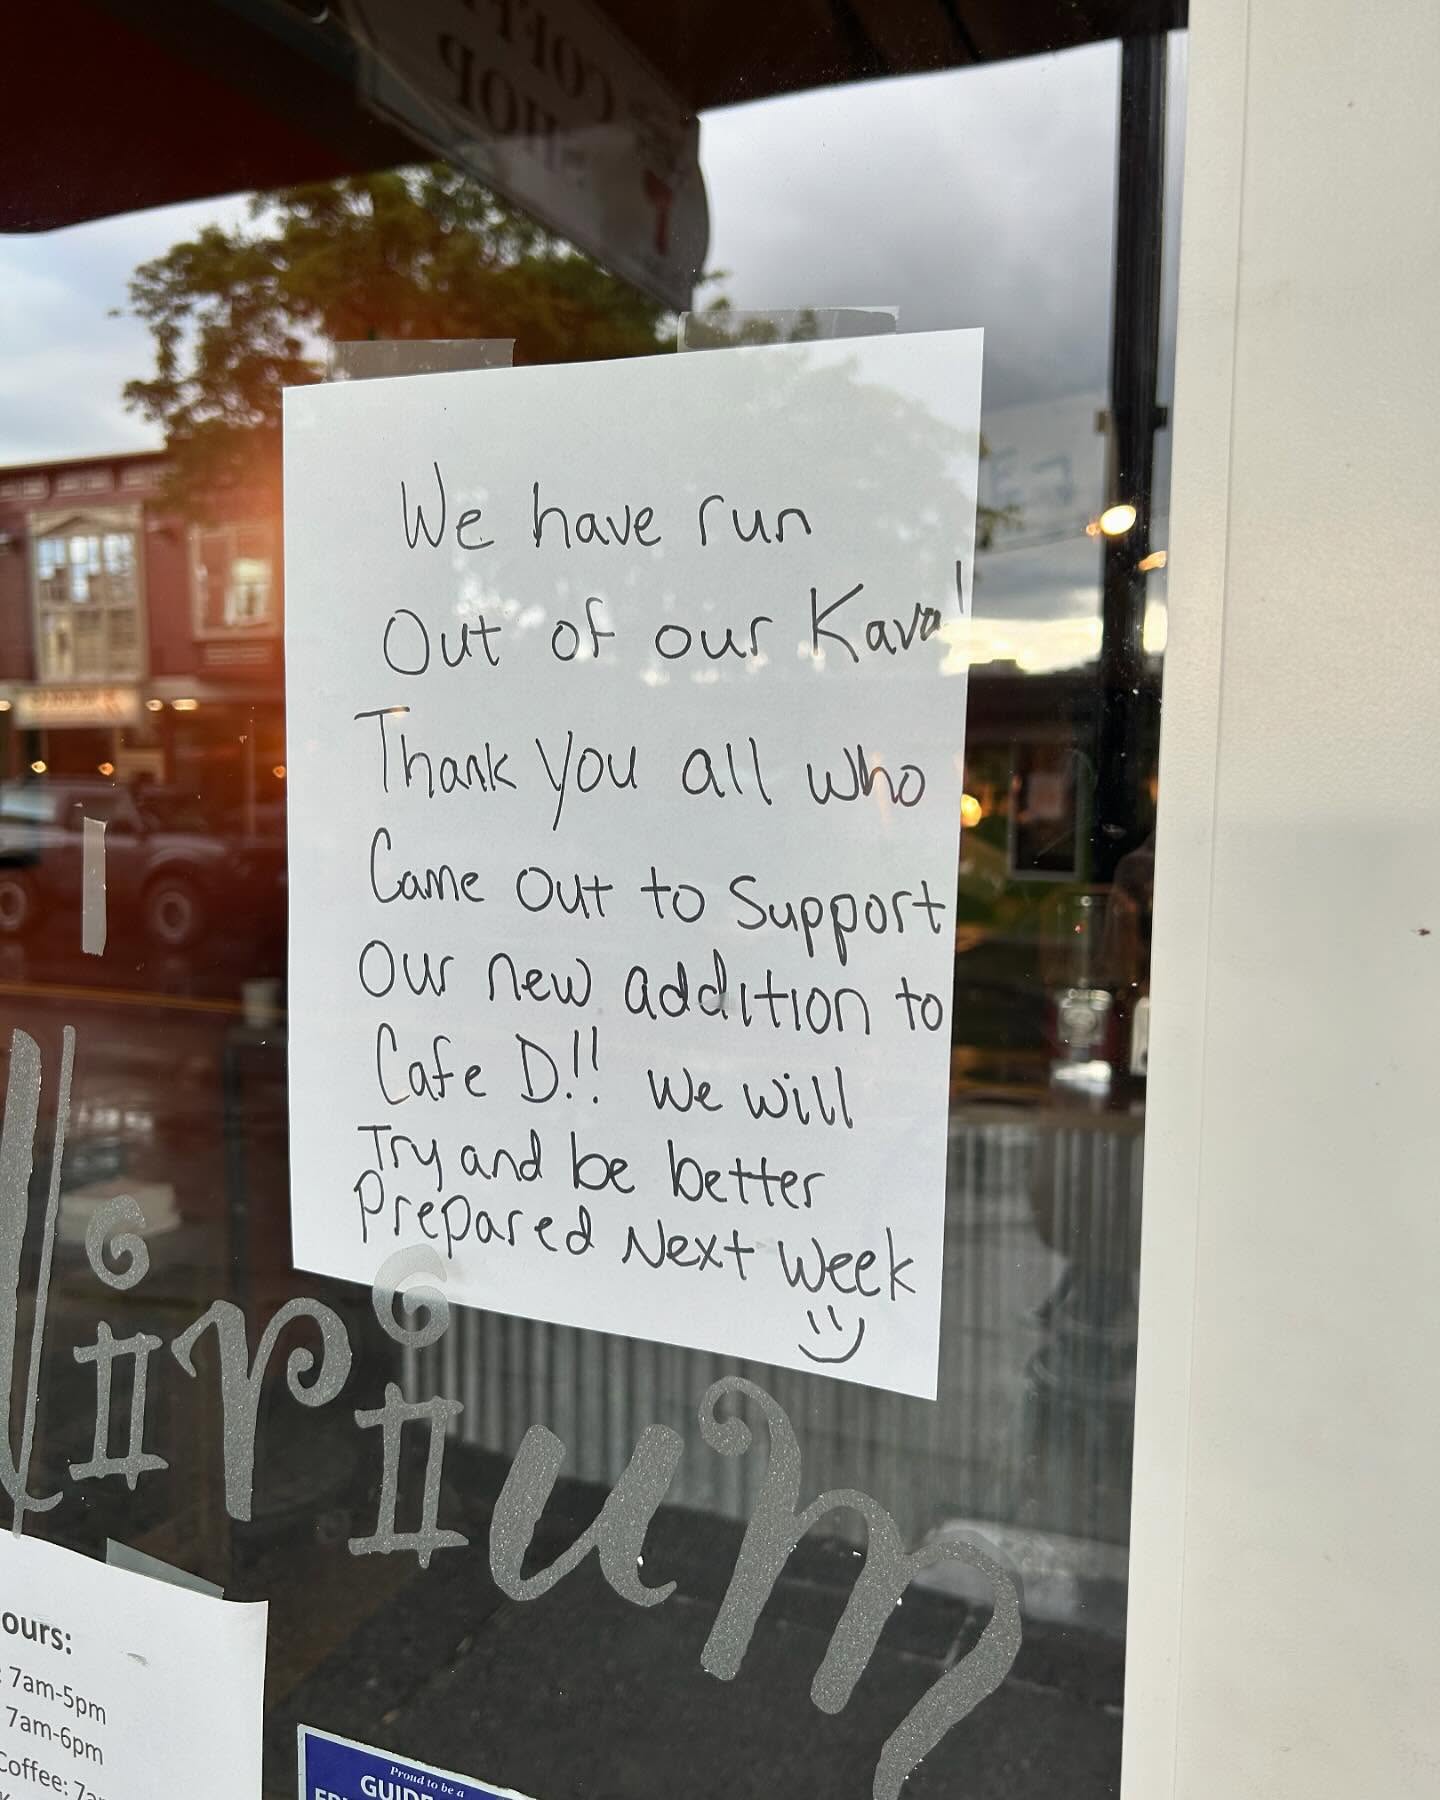 COFFEE
SHOP
We have run
Out of our Kava!
Thank you all who
Came out to Support
Our new addition to
Cafe D!! We will
Try and be better
Prepared Next Week
lirium
ours:
: 7am-5pm
7am-6pm
Coffee: 7a
Proud to be a
GUIDE